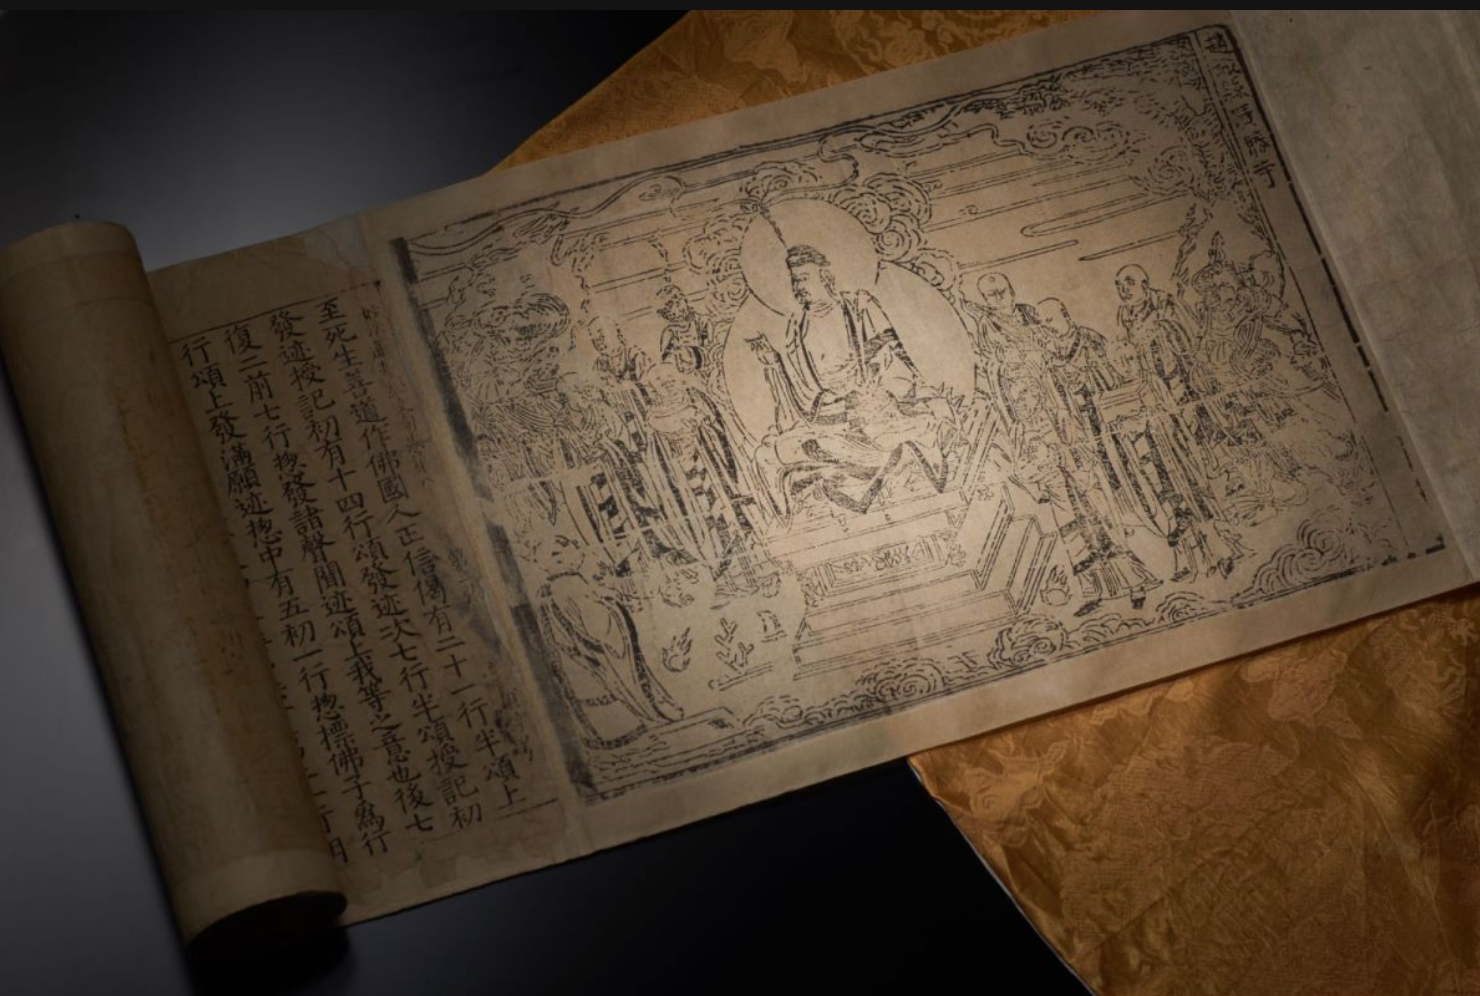 趙城縣廣勝寺
至死生菩道作佛國人正信偈有二十一行半頌上
發迹授記初有十四行頌發迹次七行半頌授記初
復二前七行揔發諸聲聞迹頌上我等之意也後七
行頌上發滿願迹揔中有五初一行揔標佛子為行